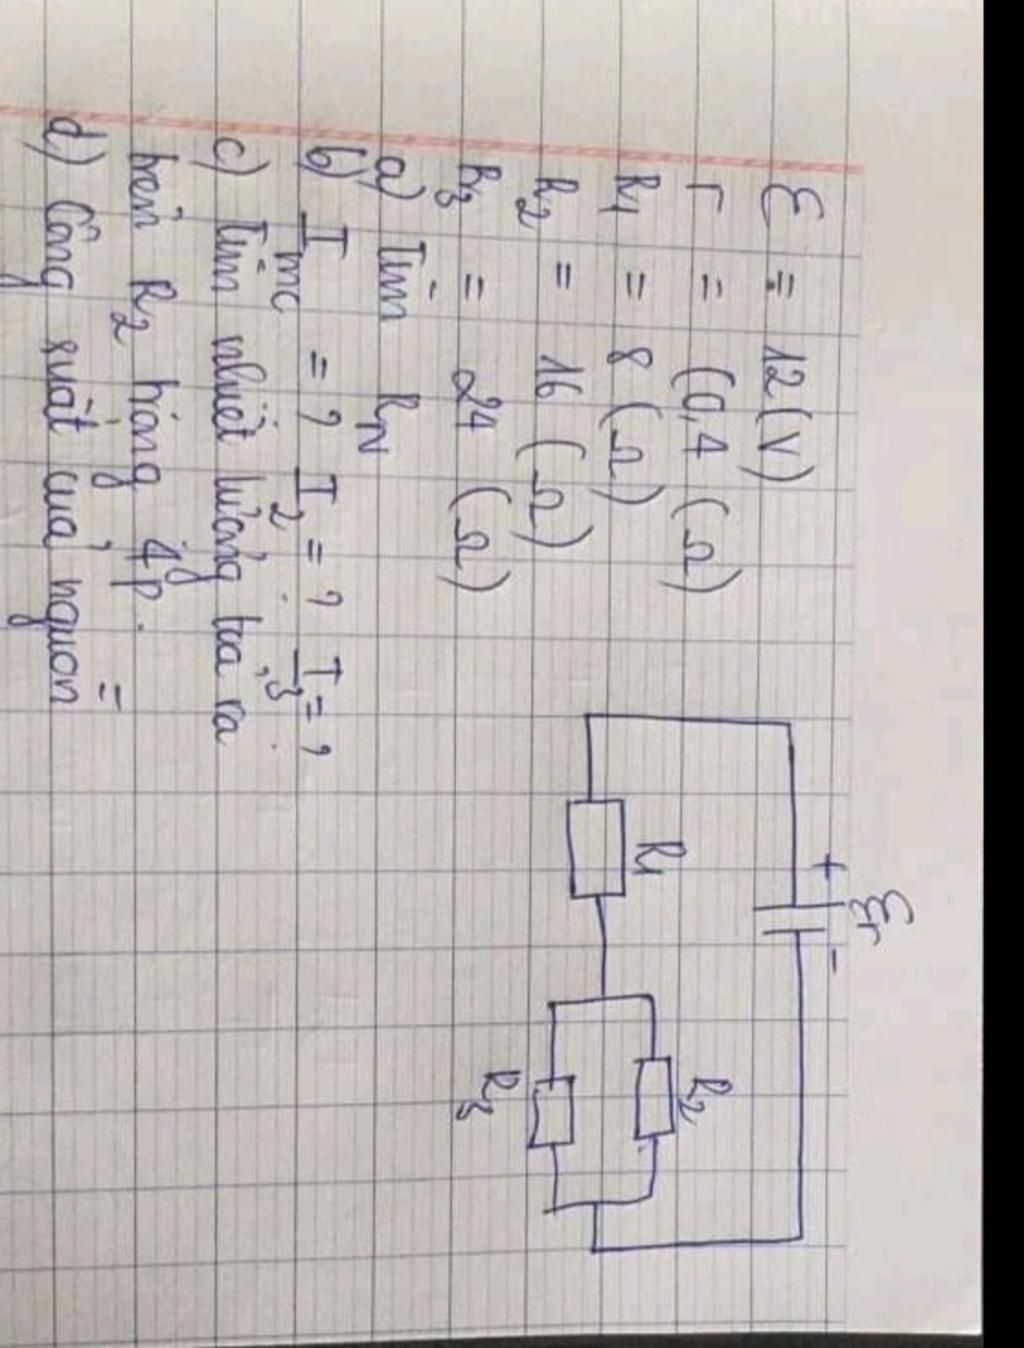 ℰ = 12 (V)
r = (0,4 (Ω)
R1 = 8 (Ω)
R2 = 16 (Ω)
R3 = 24 (Ω)
a) Tìm RN
b) Imc = ? I2 = ? I3 = ?
c) Tìm nhiệt lượng tỏa ra
trên R2 trong 4p.
d) Công suất của nguồn
+ ℰr -
R1
R2
R3